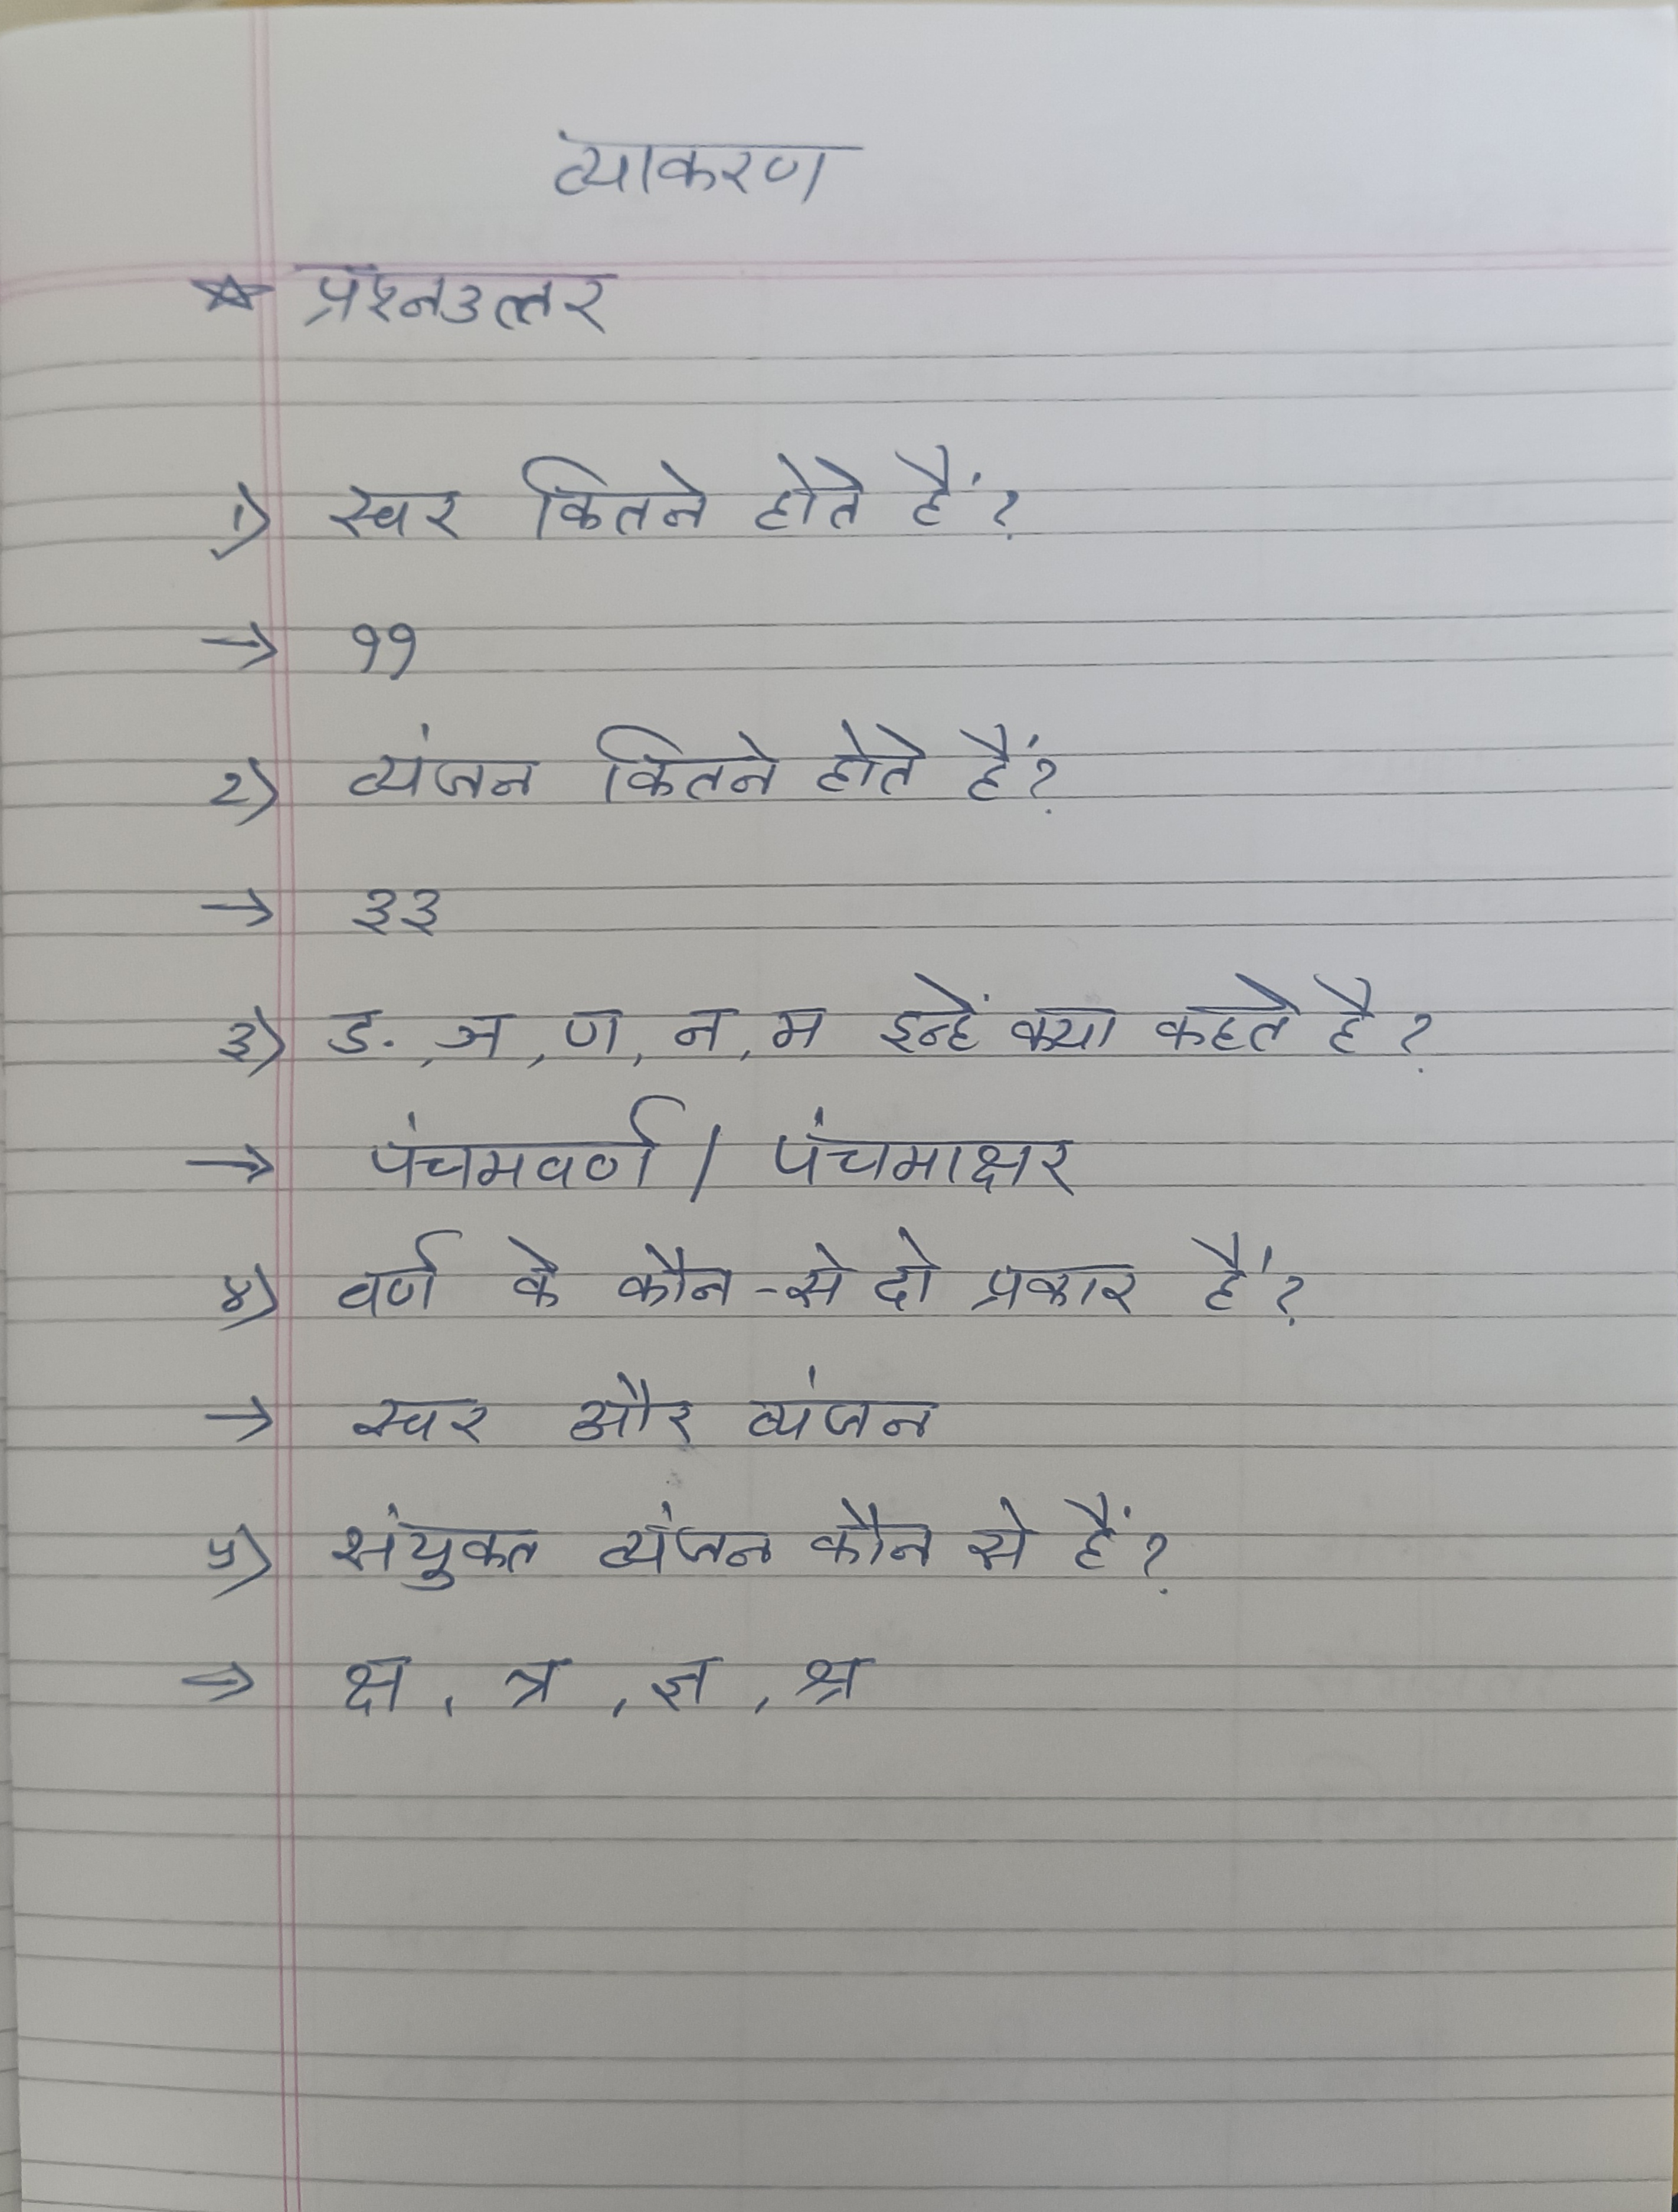 व्याकरण
☆ प्रश्नउत्तर
१) स्वर कितने होते हैं?
→ ११
२) व्यंजन कितने होते हैं?
→ ३३
३) ङ, ञ, ण, न, म इन्हें क्या कहते है?
→ पंचमवर्ण / पंचमाक्षर
४) वर्ण के कौन-से दो प्रकार हैं?
→ स्वर और व्यंजन
५) संयुक्त व्यंजन कौन से हैं?
→ क्ष, त्र, ज्ञ, श्र